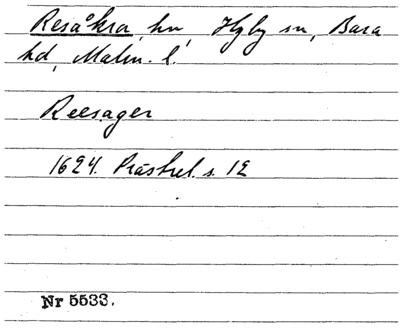 Resåkra, hn, Hyby sn, Bara
hd, Malm. l.
Reesager
1624. Prästrel. s. 12
Nr 5533.